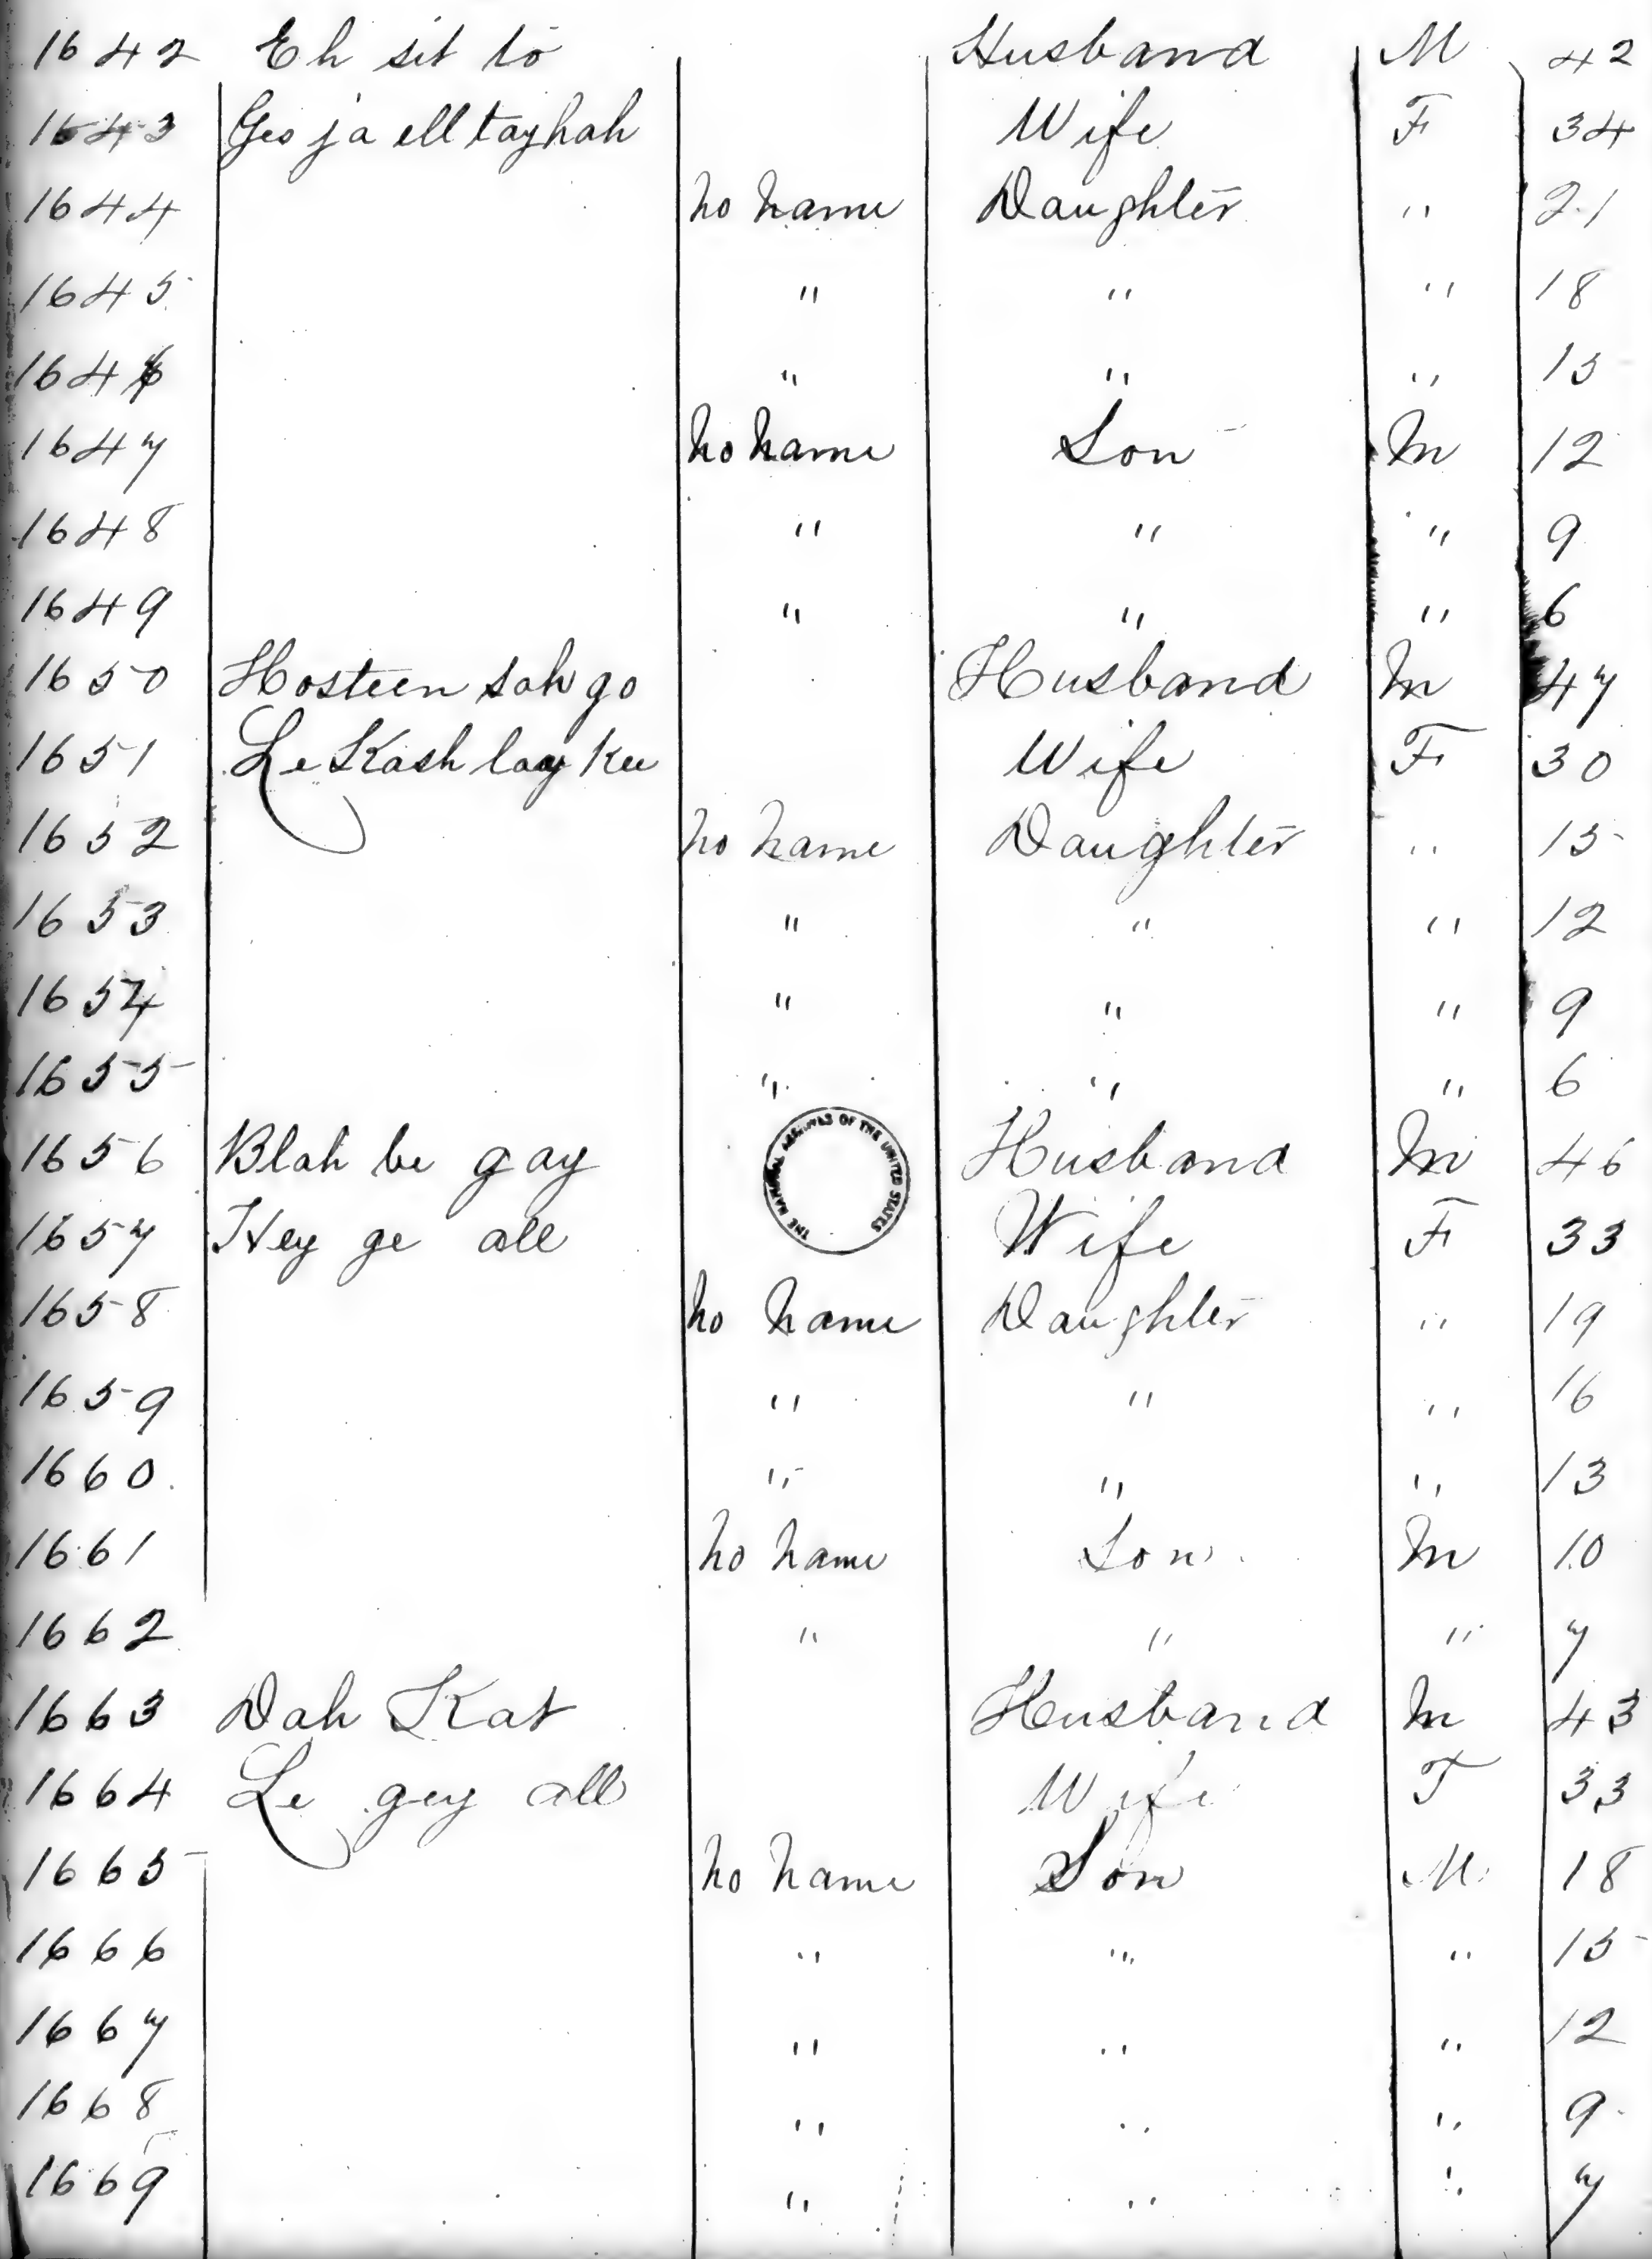 1642 Eh sit to Husband M 42
1643 Ges ja ell tay hah Wife F 34
1644 no name Daughter " 21
1645 " " " 18
1646 " " " 15
1647 no name Son M 12
1648 " " " 9
1649 " " " 6
1650 Hosteen sah go Husband M 47
1651 Le Kash lay kee Wife F 30
1652 no name Daughter " 15
1653 " " " 12
1654 " " " 9
1655 " " " 6
THE NATIONAL ARCHIVES OF THE UNITED STATES
1656 Blah be gay Husband M 46
1657 Hey ge all Wife F 33
1658 no name Daughter " 19
1659 " " " 16
1660 " " " 13
1661 no name Son M 10
1662 " " " 7
1663 Dah Kat Husband M 43
1664 Le gey all Wife F 33
1665 no name Son M 18
1666 " " " 15
1667 " " " 12
1668 " " " 9
1669 " " " 7